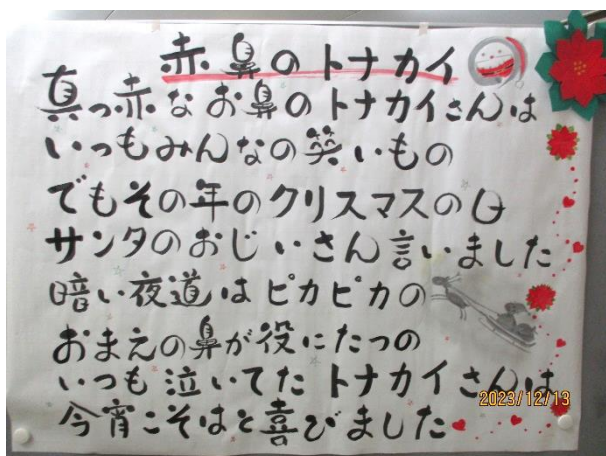 赤鼻のトナカイ
真っ赤なお鼻のトナカイさんは
いつもみんなの笑いもの
でもその年のクリスマスの日
サンタのおじいさん言いました
暗い夜道はピカピカの
おまえの鼻が役にたつの
いつも泣いてたトナカイさんは
今宵こそはと喜びました
2023/12/13